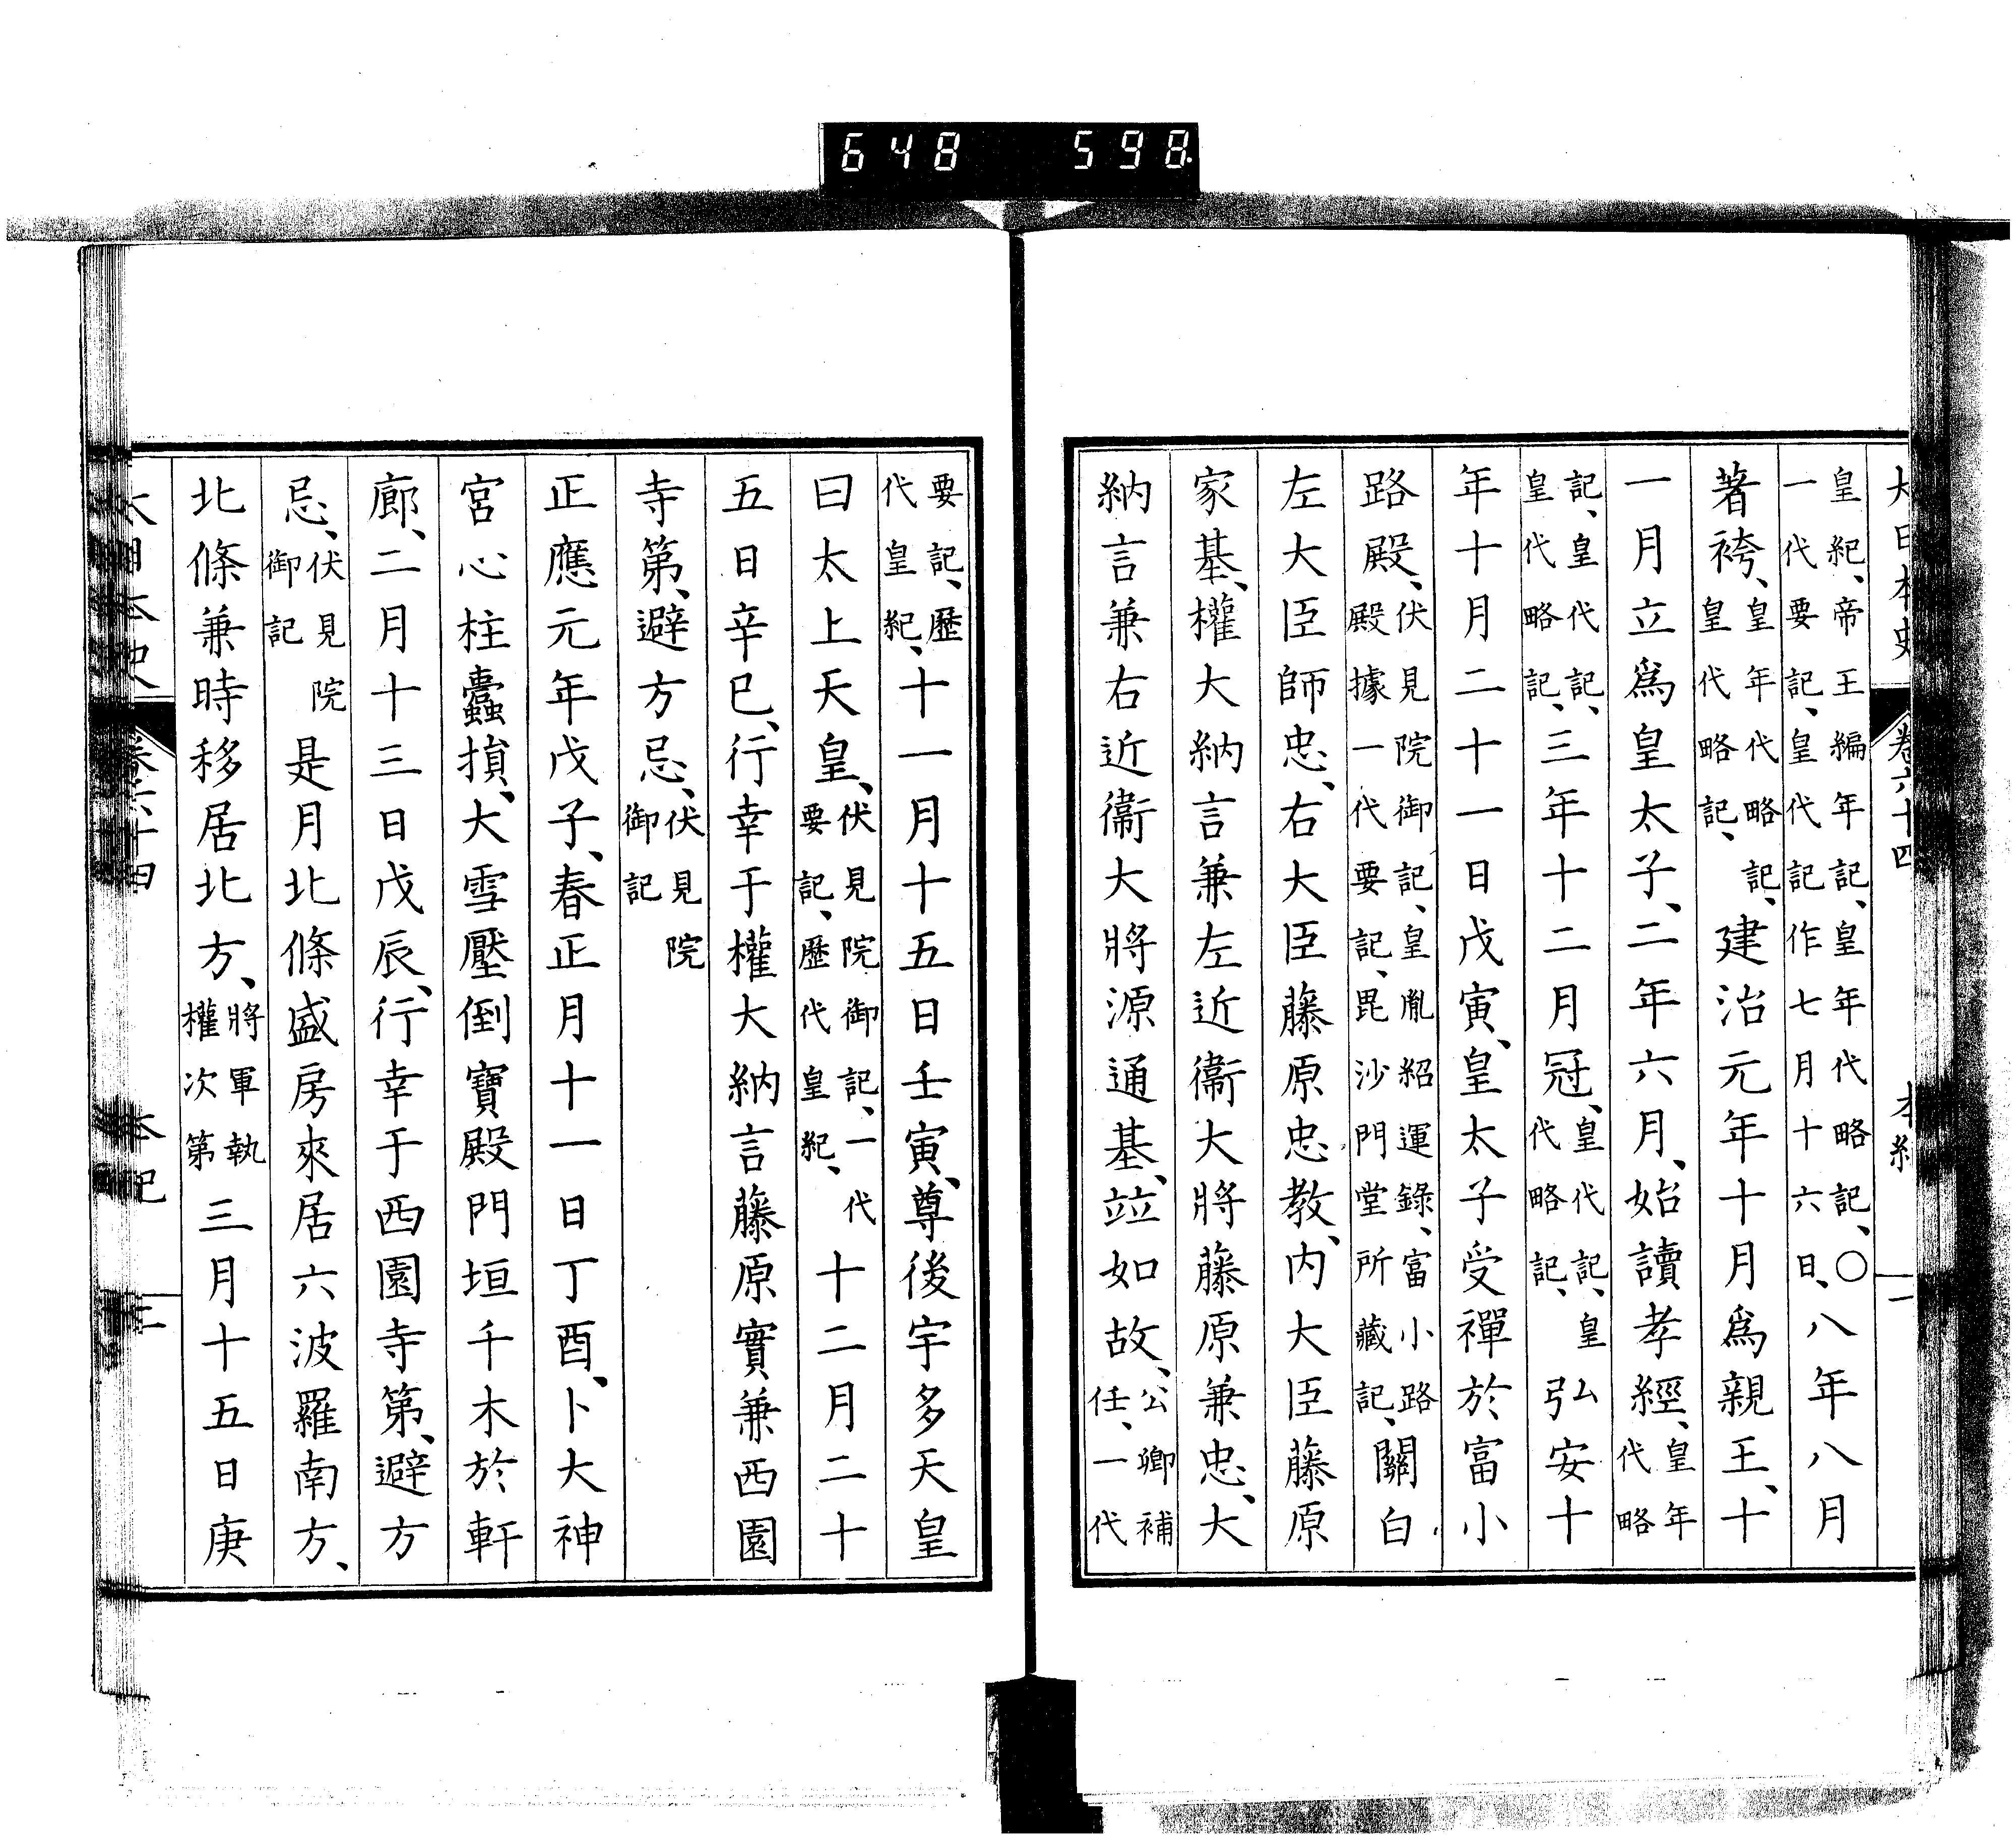 648 598
大日本史 卷六十四 本紀 二
皇紀、帝王編年記、皇年代略記、○一代要記、皇代記作七月十六日、八年八月
著袴、皇年代略記、皇代略記、建治元年十月爲親王、十
一月立爲皇太子、二年六月、始讀孝經、皇年代略
記、皇代記、皇代略記、三年十二月冠、皇代記、皇代略記、弘安十
年十月二十一日戊寅、皇太子受禪於富小
路殿、伏見院御記、皇胤紹運錄、富小路殿據一代要記、毘沙門堂所藏記、關白
左大臣師忠、右大臣藤原忠教、内大臣藤原
家基、權大納言兼左近衞大將藤原兼忠、大
納言兼右近衞大將源通基、竝如故、公卿補任、一代
要記、歷代皇紀、十一月十五日壬寅、尊後宇多天皇
曰太上天皇、伏見院御記、一代要記、歷代皇紀、十二月二十
五日辛巳、行幸于權大納言藤原實兼西園
寺第、避方忌、伏見院御記
正應元年戊子、春正月十一日丁酉、卜大神
宮心柱蠹損、大雪壓倒寶殿門垣千木於軒
廊、二月十三日戊辰、行幸于西園寺第、避方
忌、伏見院御記 是月北條盛房來居六波羅南方、
北條兼時移居北方、將軍執權次第 三月十五日庚
大日本史 卷六十四 本紀 三